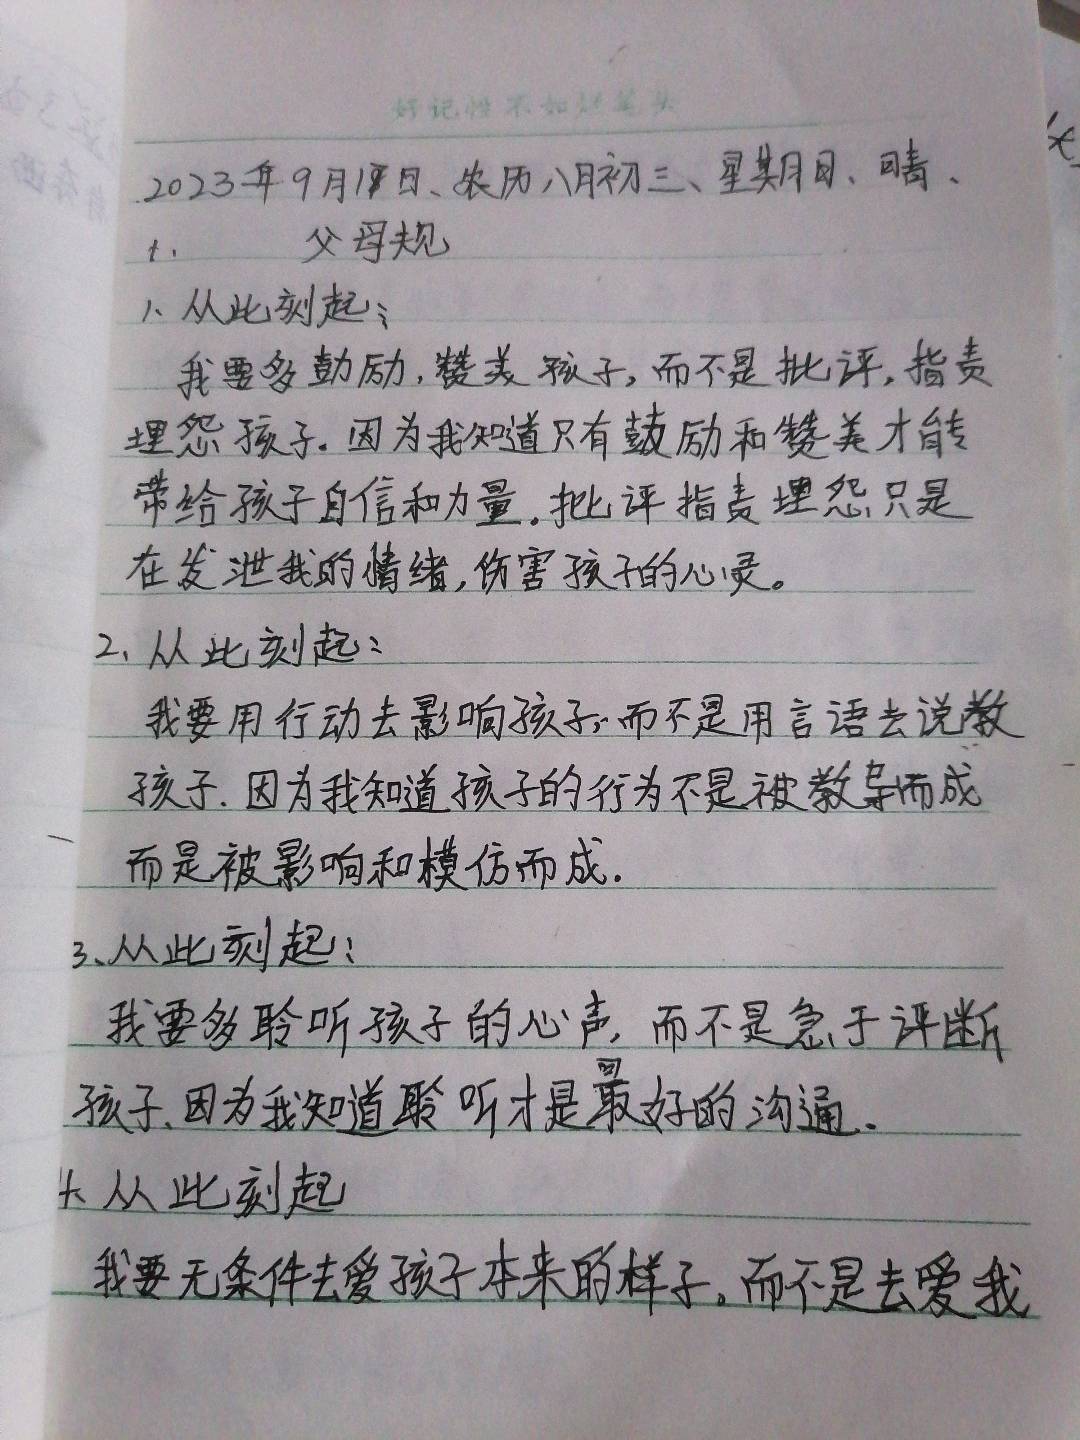 好记性不如烂笔头
2023年9月17日、农历八月初三、星期日、晴、
1. 父母规
1、从此刻起；
我要多鼓励,赞美孩子,而不是批评,指责
埋怨孩子。因为我知道只有鼓励和赞美才能
带给孩子自信和力量。批评指责埋怨只是
在发泄我的情绪,伤害孩子的心灵。
2、从此刻起：
我要用行动去影响孩子,而不是用言语去说教
孩子.因为我知道孩子的行为不是被教导而成
而是被影响和模仿而成.
3、从此刻起：
我要多聆听孩子的心声,而不是急于评断
孩子、因为我知道聆听才是最好的沟通.
4、从此刻起
我要无条件去爱孩子本来的样子。而不是去爱我